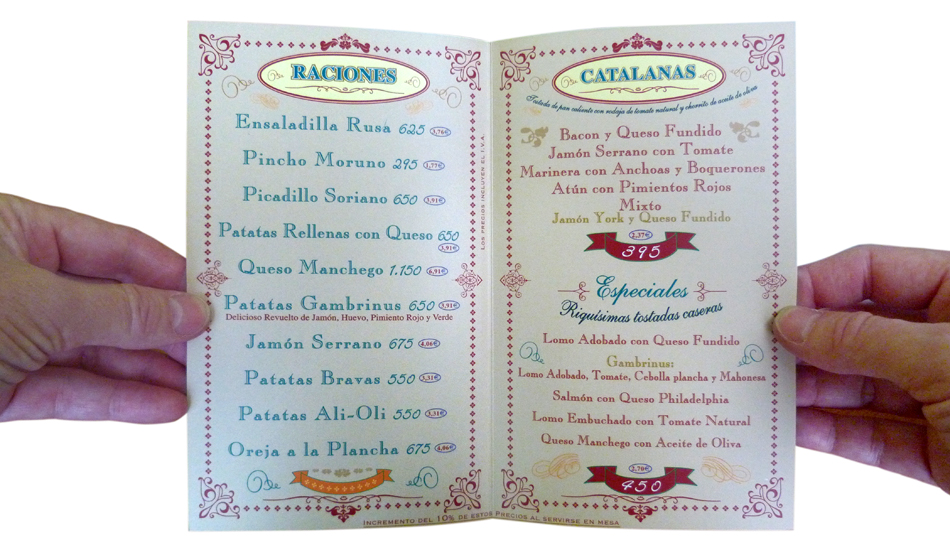 RACIONES
Ensaladilla Rusa 625 3,76€
Pincho Moruno 295 1,77€
Picadillo Soriano 650 3,91€
Patatas Rellenas con Queso 650
3,91€
Queso Manchego 1.150 6,91€
Patatas Gambrinus 650 3,91€
Delicioso Revuelto de Jamón, Huevo, Pimiento Rojo y Verde
Jamón Serrano 675 4,06€
Patatas Bravas 550 3,31€
Patatas Ali-Oli 550 3,31€
Oreja a la Plancha 675 4,06€
LOS PRECIOS INCLUYEN EL I.V.A.
CATALANAS
Tostada de pan caliente con rodaja de tomate natural y chorrito de aceite de oliva
Bacon y Queso Fundido
Jamón Serrano con Tomate
Marinera con Anchoas y Boquerones
Atún con Pimientos Rojos
Mixto
Jamón York y Queso Fundido
2,37€
395
Especiales
Riquísimas tostadas caseras
Lomo Adobado con Queso Fundido
Gambrinus:
Lomo Adobado, Tomate, Cebolla plancha y Mahonesa
Salmón con Queso Philadelphia
Lomo Embuchado con Tomate Natural
Queso Manchego con Aceite de Oliva
2,70€
450
INCREMENTO DEL 10% DE ESTOS PRECIOS AL SERVIRSE EN MESA